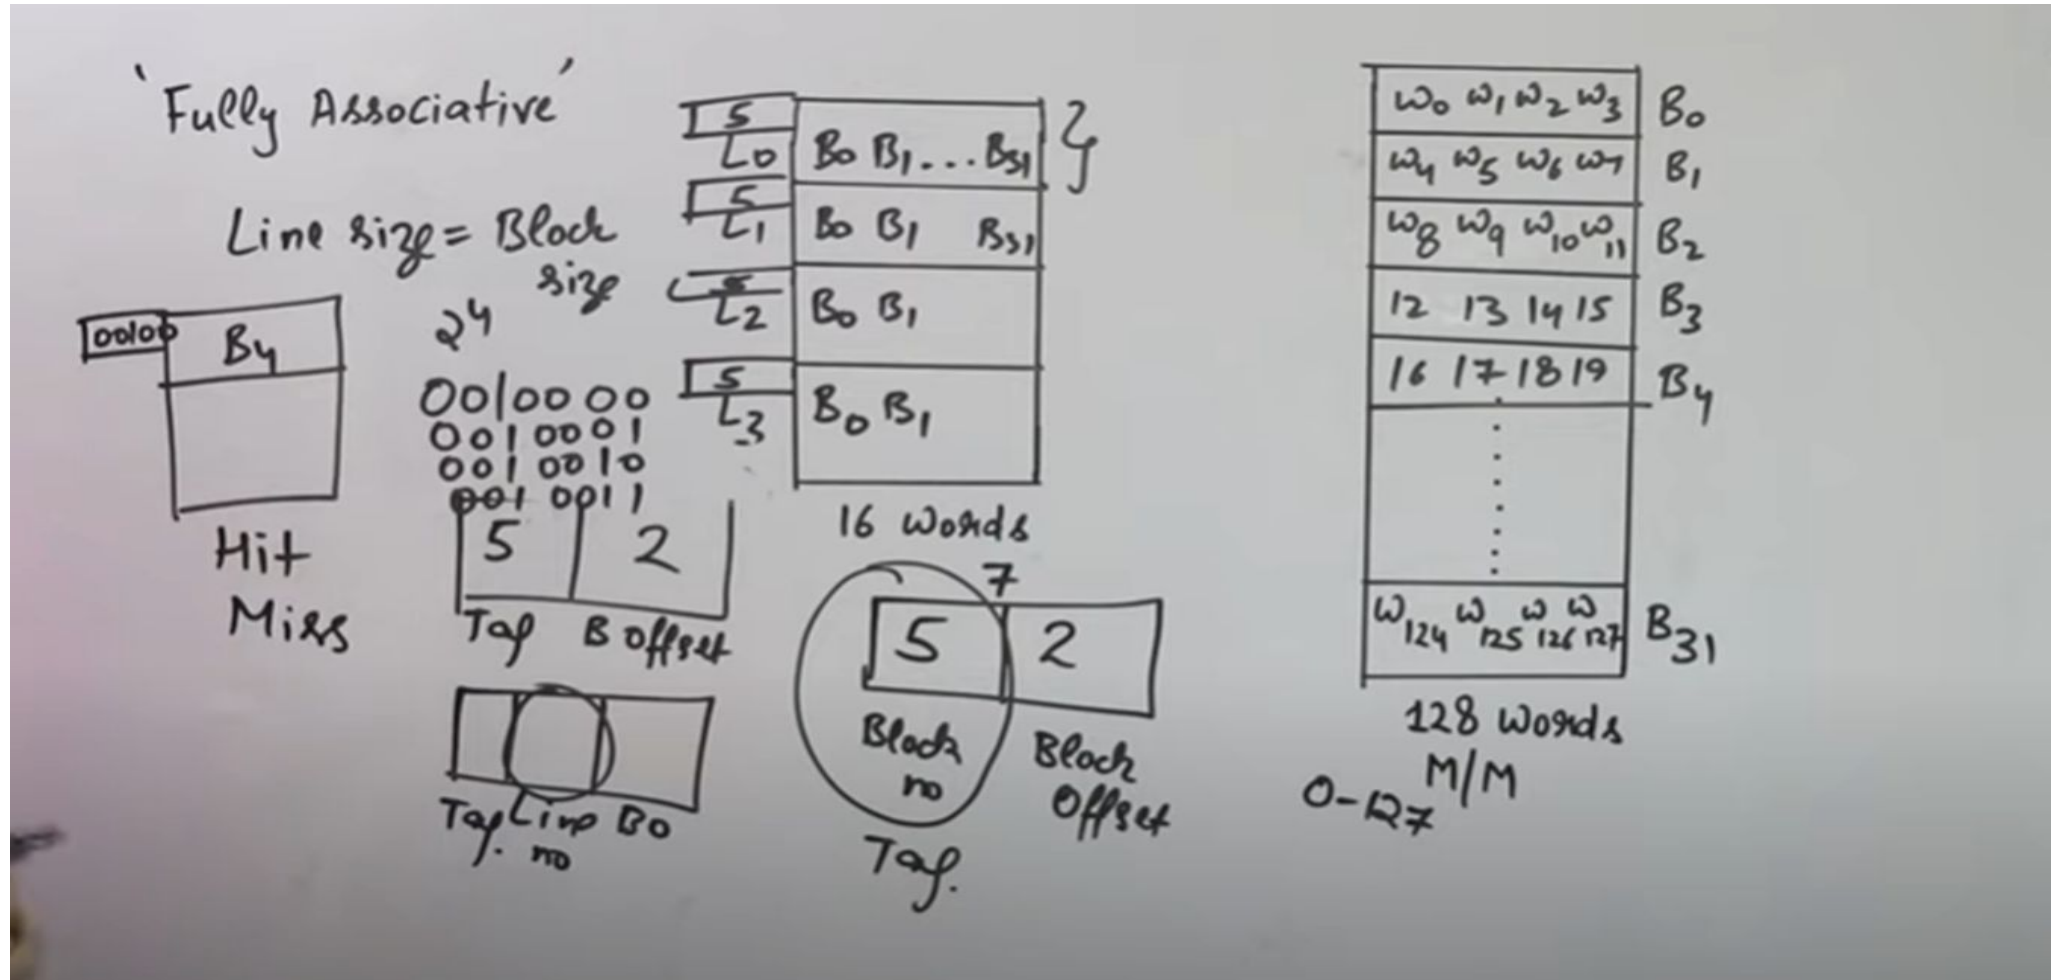 'Fully Associative'
Line size = Block
size
00100 B4
Hit
Miss
24
0010000
0010001
0010010
0010011
5 2
Tag B offset
Tag. Line BO
no
5
L0 B0 B1 . . . B31
5
L1 B0 B1 B31
5
L2 B0 B1
5
L3 B0 B1
16 words
7
5 2
Block Block
no Offset
Tag.
W0 W1 W2 W3 B0
W4 W5 W6 W7 B1
W8 W9 W10 W11 B2
12 13 14 15 B3
16 17 18 19 B4
W124 W125 W126 W127 B31
128 words
M/M
0-127